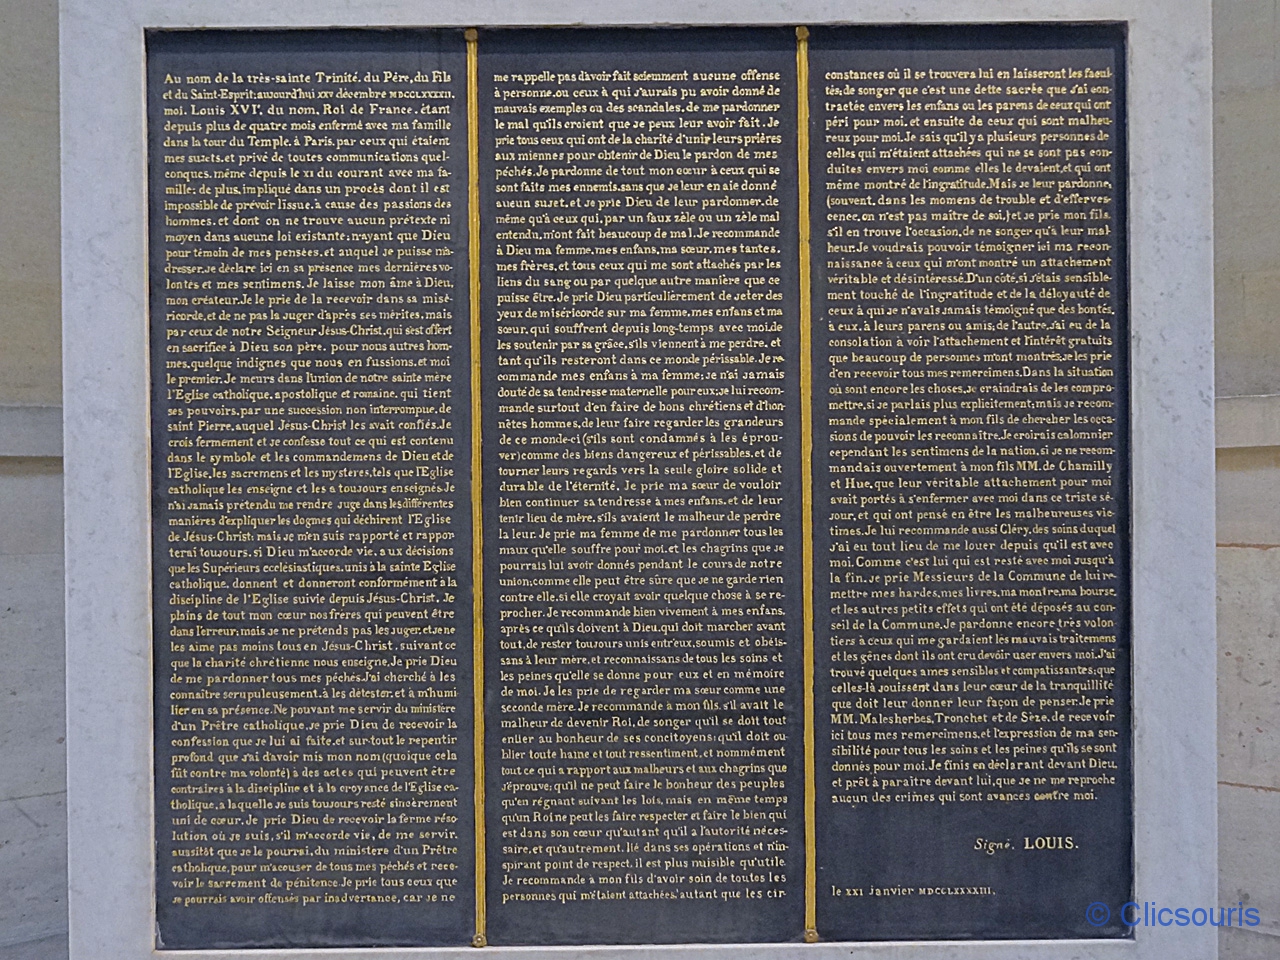 Au nom de la très-sainte Trinité, du Père, du Fils
et du Saint-Esprit; aujourd'hui XXV décembre MDCCLXXXXII,
moi, Louis XVIᵉ, du nom, Roi de France, étant
depuis plus de quatre mois enfermé avec ma famille
dans la tour du Temple, à Paris, par ceux qui étaient
mes sujets, et privé de toutes communications quel-
conques, même depuis le XI du courant avec ma fa-
mille; de plus, impliqué dans un procès dont il est
impossible de prévoir l'issue, à cause des passions des
hommes, et dont on ne trouve aucun prétexte ni
moyen dans aucune loi existante; n'ayant que Dieu
pour témoin de mes pensées, et auquel je puisse m'a-
dresser. Je déclare ici en sa présence mes dernières vo-
lontés et mes sentimens. Je laisse mon âme à Dieu,
mon créateur. Je le prie de la recevoir dans sa misé-
ricorde, et de ne pas la juger d'après ses mérites, mais
par ceux de notre Seigneur Jésus-Christ, qui s'est offert
en sacrifice à Dieu son père, pour nous autres hom-
mes, quelque indignes que nous en fussions, et moi
le premier. Je meurs dans l'union de notre sainte mère
l'Eglise catholique, apostolique et romaine, qui tient
ses pouvoirs, par une succession non interrompue, de
saint Pierre, auquel Jésus-Christ les avait confiés. Je
crois fermement et je confesse tout ce qui est contenu
dans le symbole et les commandemens de Dieu et de
l'Eglise, les sacremens et les mystères, tels que l'Eglise
catholique les enseigne et les a toujours enseignés. Je
n'ai jamais prétendu me rendre juge dans les différentes
manières d'expliquer les dogmes qui déchirent l'Eglise
de Jésus-Christ; mais je m'en suis rapporté et rappor-
terai toujours, si Dieu m'accorde vie, aux décisions
que les Supérieurs ecclésiastiques, unis à la sainte Eglise
catholique, donnent et donneront conformément à la
discipline de l'Eglise suivie depuis Jésus-Christ. Je
plains de tout mon cœur nos frères qui peuvent être
dans l'erreur; mais je ne prétends pas les juger, et je ne
les aime pas moins tous en Jésus-Christ, suivant ce
que la charité chrétienne nous enseigne. Je prie Dieu
de me pardonner tous mes péchés. J'ai cherché à les
connaître scrupuleusement, à les détester, et à m'humi
lier en sa présence. Ne pouvant me servir du ministère
d'un Prêtre catholique, je prie Dieu de recevoir la
confession que je lui ai faite, et sur-tout le repentir
profond que j'ai d'avoir mis mon nom (quoique cela
fût contre ma volonté) à des actes qui peuvent être
contraires à la discipline et à la croyance de l'Eglise ca-
tholique, à laquelle je suis toujours resté sincèrement
uni de cœur. Je prie Dieu de recevoir la ferme réso-
lution où je suis, s'il m'accorde vie, de me servir,
aussitôt que je le pourrai, du ministère d'un Prêtre
catholique, pour m'accuser de tous mes péchés et rece-
voir le sacrement de pénitence. Je prie tous ceux que
je pourrais avoir offensés par inadvertance, car je ne
me rappelle pas d'avoir fait sciemment aucune offense
à personne, ou ceux à qui j'aurais pu avoir donné de
mauvais exemples ou des scandales, de me pardonner
le mal qu'ils croient que je peux leur avoir fait. Je
prie tous ceux qui ont de la charité d'unir leurs prières
aux miennes pour obtenir de Dieu le pardon de mes
péchés. Je pardonne de tout mon cœur à ceux qui se
sont faits mes ennemis, sans que je leur en aie donné
aucun sujet, et je prie Dieu de leur pardonner, de
même qu'à ceux qui, par un faux zèle ou un zèle mal
entendu, m'ont fait beaucoup de mal. Je recommande
à Dieu ma femme, mes enfans, ma sœur, mes tantes,
mes frères, et tous ceux qui me sont attachés par les
liens du sang ou par quelque autre manière que ce
puisse être. Je prie Dieu particulièrement de jeter des
yeux de miséricorde sur ma femme, mes enfans et ma
sœur, qui souffrent depuis long-temps avec moi, de
les soutenir par sa grâce, s'ils viennent à me perdre, et
tant qu'ils resteront dans ce monde périssable. Je re-
commande mes enfans à ma femme; je n'ai jamais
douté de sa tendresse maternelle pour eux; je lui recom-
mande surtout d'en faire de bons chrétiens et d'hon-
nêtes hommes, de leur faire regarder les grandeurs
de ce monde-ci (s'ils sont condamnés à les éprou-
ver) comme des biens dangereux et périssables, et de
tourner leurs regards vers la seule gloire solide et
durable de l'éternité. Je prie ma sœur de vouloir
bien continuer sa tendresse à mes enfans, et de leur
tenir lieu de mère, s'ils avaient le malheur de perdre
la leur. Je prie ma femme de me pardonner tous les
maux qu'elle souffre pour moi, et les chagrins que je
pourrais lui avoir donnés pendant le cours de notre
union; comme elle peut être sûre que je ne garde rien
contre elle, si elle croyait avoir quelque chose à se re-
procher. Je recommande bien vivement à mes enfans,
après ce qu'ils doivent à Dieu, qui doit marcher avant
tout, de rester toujours unis entr'eux, soumis et obéis-
sans à leur mère, et reconnaissans de tous les soins et
les peines qu'elle se donne pour eux et en mémoire
de moi. Je les prie de regarder ma sœur comme une
seconde mère. Je recommande à mon fils, s'il avait le
malheur de devenir Roi, de songer qu'il se doit tout
entier au bonheur de ses concitoyens; qu'il doit ou-
blier toute haine et tout ressentiment, et nommément
tout ce qui a rapport aux malheurs et aux chagrins que
j'éprouve; qu'il ne peut faire le bonheur des peuples
qu'en régnant suivant les lois, mais en même temps
qu'un Roi ne peut les faire respecter et faire le bien qui
est dans son cœur qu'autant qu'il a l'autorité néces-
saire, et qu'autrement, lié dans ses opérations et n'in-
spirant point de respect, il est plus nuisible qu'utile.
Je recommande à mon fils d'avoir soin de toutes les
personnes qui m'étaient attachées, autant que les cir-
constances où il se trouvera lui en laisseront les facul-
tés; de songer que c'est une dette sacrée que j'ai con-
tractée envers les enfans ou les parens de ceux qui ont
péri pour moi, et ensuite de ceux qui sont malheu-
reux pour moi. Je sais qu'il y a plusieurs personnes de
celles qui m'étaient attachées qui ne se sont pas con-
duites envers moi comme elles le devaient, et qui ont
même montré de l'ingratitude. Mais je leur pardonne,
(souvent, dans les momens de trouble et d'efferves-
cence, on n'est pas maître de soi,) et je prie mon fils,
s'il en trouve l'occasion, de ne songer qu'à leur mal-
heur. Je voudrais pouvoir témoigner ici ma recon-
naissance à ceux qui m'ont montré un attachement
véritable et désintéressé. D'un côté, si j'étais sensible-
ment touché de l'ingratitude et de la déloyauté de
ceux à qui je n'avais jamais témoigné que des bontés,
à eux, à leurs parens ou amis; de l'autre, j'ai eu de la
consolation à voir l'attachement et l'intérêt gratuits
que beaucoup de personnes m'ont montrés; je les prie
d'en recevoir tous mes remercimens. Dans la situation
où sont encore les choses, je craindrais de les compro-
mettre, si je parlais plus explicitement; mais je recom-
mande spécialement à mon fils de chercher les occa-
sions de pouvoir les reconnaître. Je croirais calomnier
cependant les sentimens de la nation, si je ne recom-
mandais ouvertement à mon fils MM. de Chamilly
et Hue, que leur véritable attachement pour moi
avait portés à s'enfermer avec moi dans ce triste sé-
jour, et qui ont pensé en être les malheureuses vic-
times. Je lui recommande aussi Cléry, des soins duquel
j'ai eu tout lieu de me louer depuis qu'il est avec
moi. Comme c'est lui qui est resté avec moi jusqu'à
la fin, je prie Messieurs de la Commune de lui re-
mettre mes hardes, mes livres, ma montre, ma bourse,
et les autres petits effets qui ont été déposés au con-
seil de la Commune. Je pardonne encore très volon-
tiers à ceux qui me gardaient les mauvais traitemens
et les gênes dont ils ont cru devoir user envers moi. J'ai
trouvé quelques ames sensibles et compatissantes; que
celles-là jouissent dans leur cœur de la tranquillité
que doit leur donner leur façon de penser. Je prie
MM. Malesherbes, Tronchet et de Sèze, de recevoir
ici tous mes remercimens, et l'expression de ma sen-
sibilité pour tous les soins et les peines qu'ils se sont
donnés pour moi. Je finis en déclarant devant Dieu,
et prêt à paraître devant lui, que je ne me reproche
aucun des crimes qui sont avancés contre moi.
Signé, LOUIS.
le XXI janvier MDCCLXXXXIII.
© Clicsouris